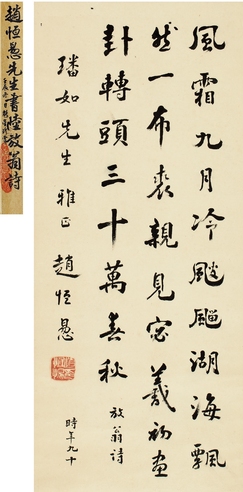 趙恒惖先生書陸放翁詩
風霜九月冷颼颼湖海飄
然一布裘親見宓羲初畫
卦轉頭三十萬春秋
放翁詩
璠如先生雅正
趙恒惖
時年九十